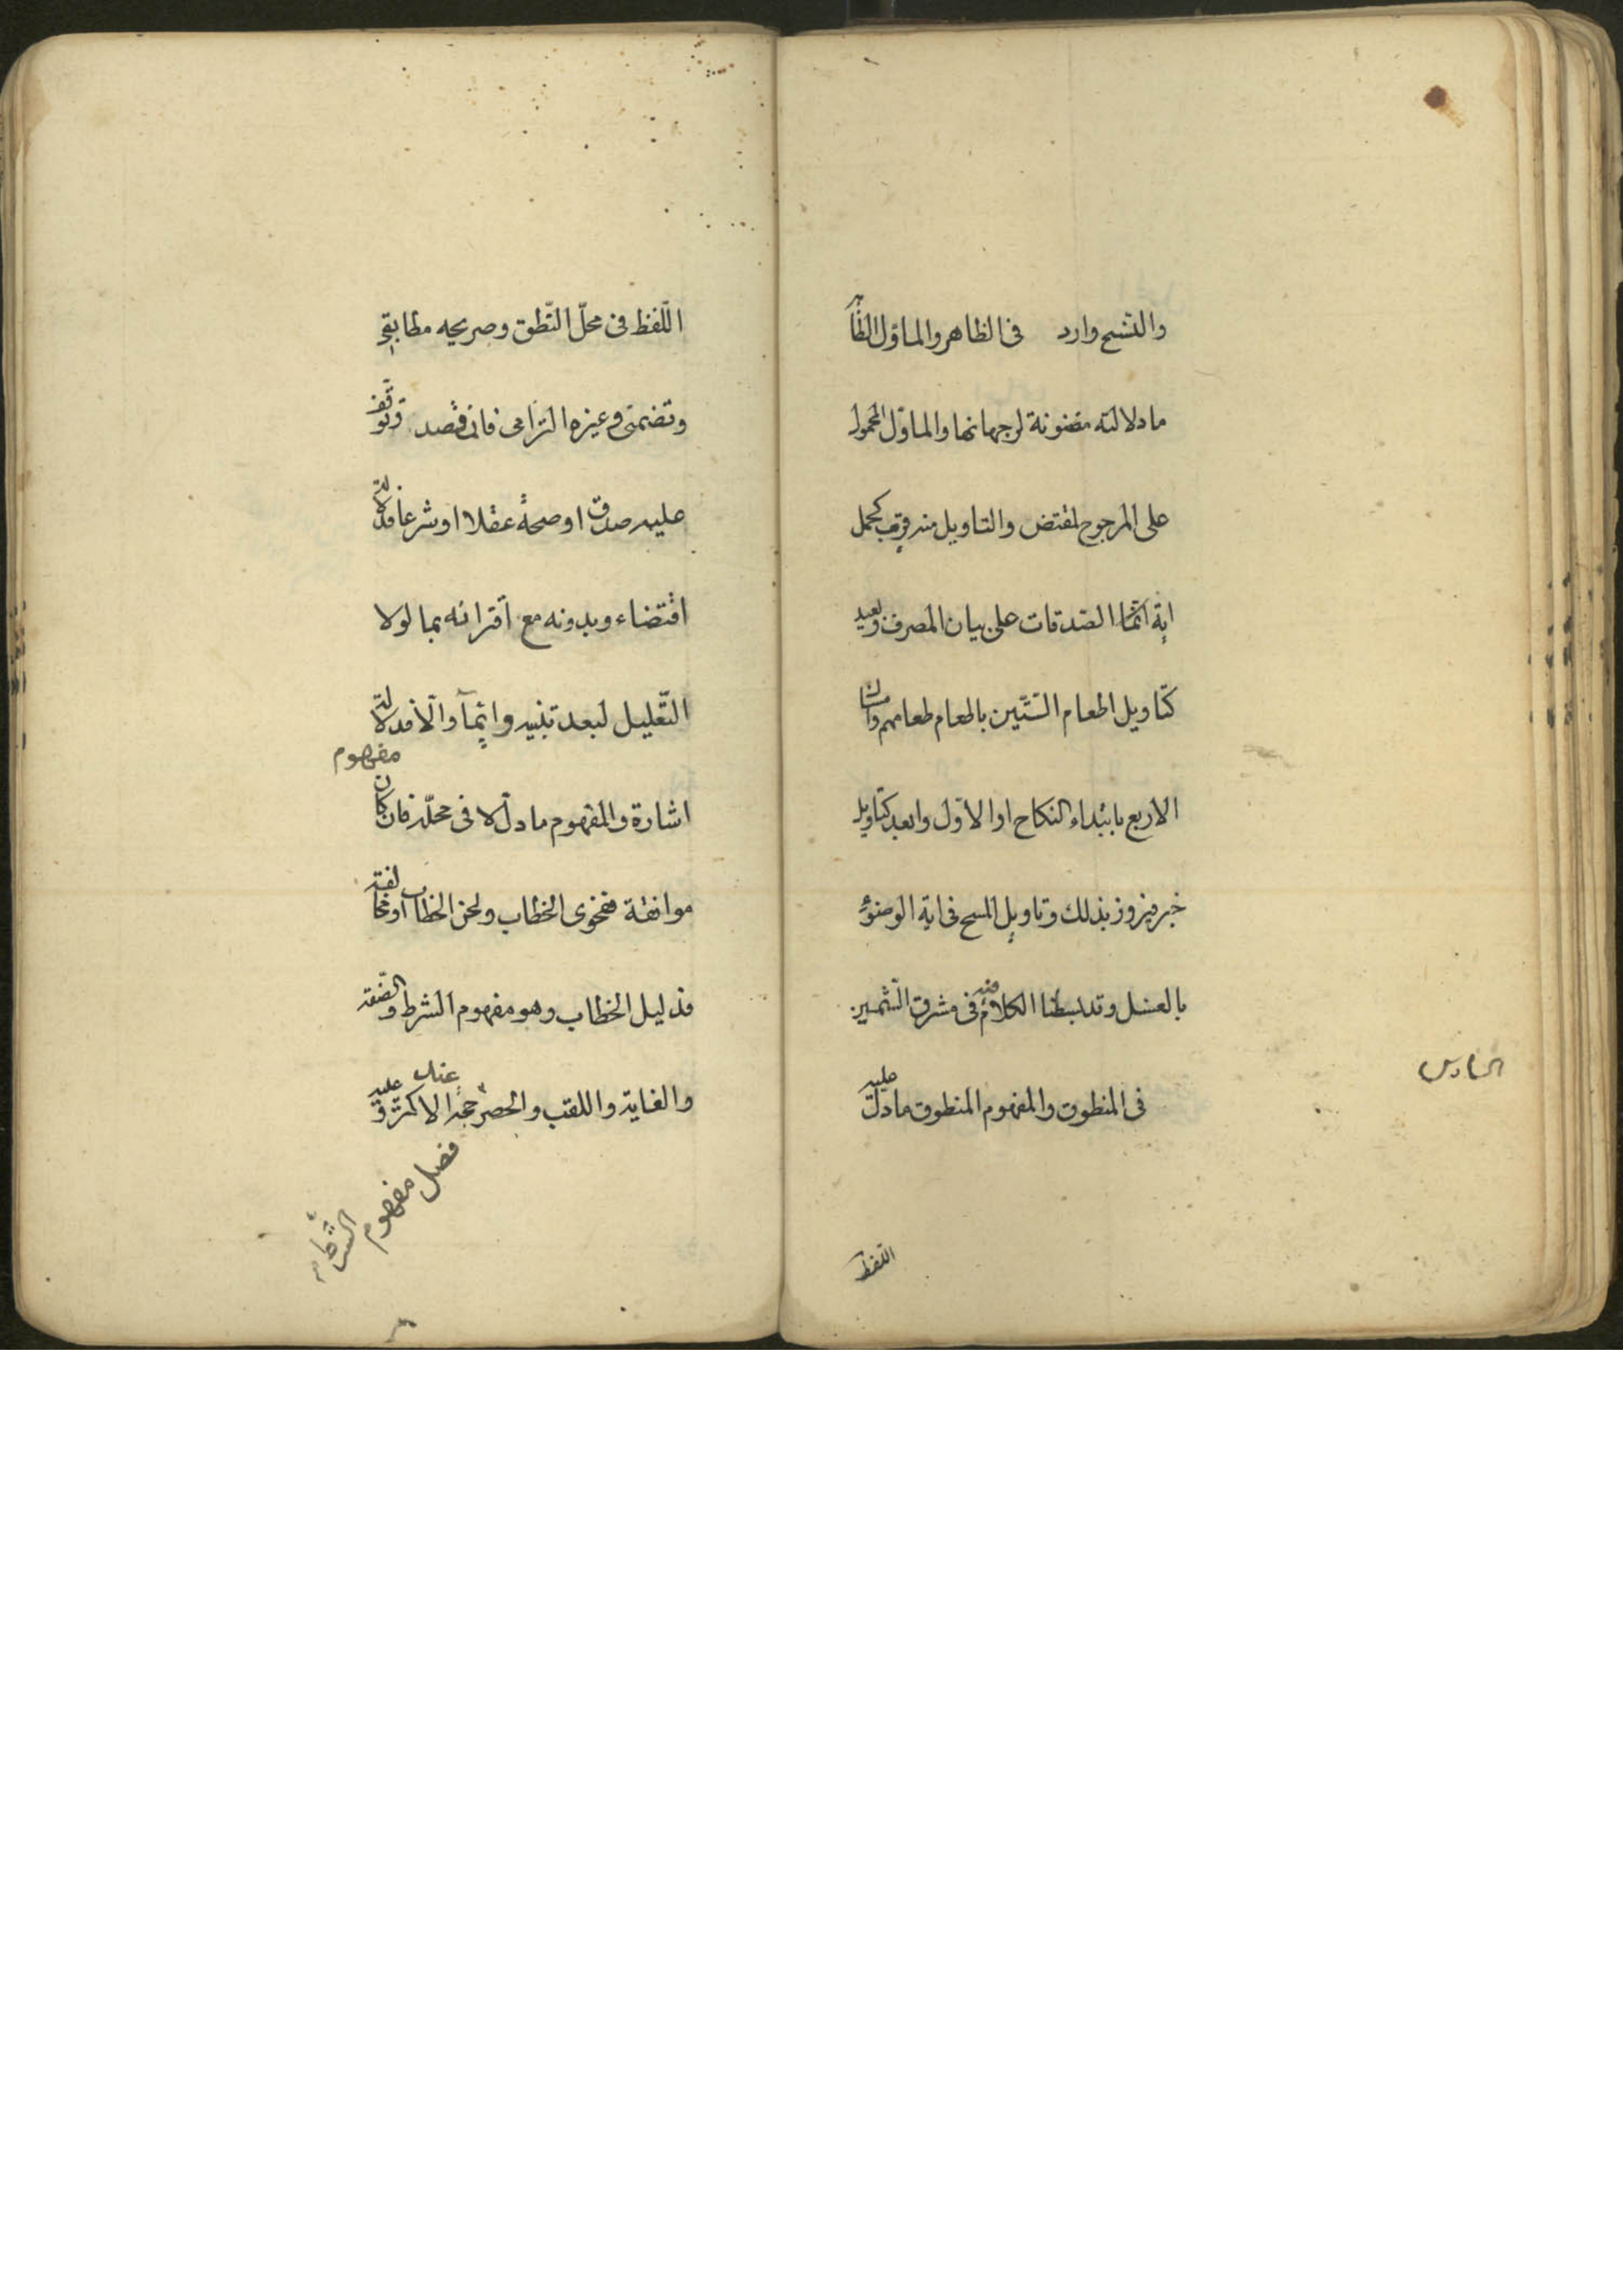 والنسخ وارد في الظاهر والماوّل الظاهر
ما دلالته مظنونة لرجحانها والماوّل المحمول
على المرجوح لمقتض والتاويل منه قريب كحمل
اية انّما الصّدقات على بيان المصرف وبعيد
كتاويل اطعام الستّين باطعام طعامهم وامساك
الاربع بابتداء النكاح او الاوّل وابعد كتاويل
خبر فيروز بذلك وتاويل المسح في اية الوضوء
بالغسل وقد بسطنا الكلام فيه في مشرق الشمسين
السادس
في المنطوق والمفهوم المنطوق ما دلّ عليه
اللفظ
اللّفظ في محلّ النّطق وصريحه مطابقي
وتضمني وغيره التزامى فان قصد وتوقف
عليه صدق او صحة عقلا او شرعا فدلالة
اقتضاء وبدونه مع اقترانه بما لولا
التّعليل لبعد تنبيه وايماء والّا فدلالة
مفهوم
اشارة والمفهوم ما دلّ لا في محلّه فان كان
موافقة فحوى الخطاب ولحن الخطاب او مخالفة
فدليل الخطاب وهو مفهوم الشرط والصّفة
والغاية واللقب والحصر حجة الاكثر وعليه
فصل مفهوم
الشرط